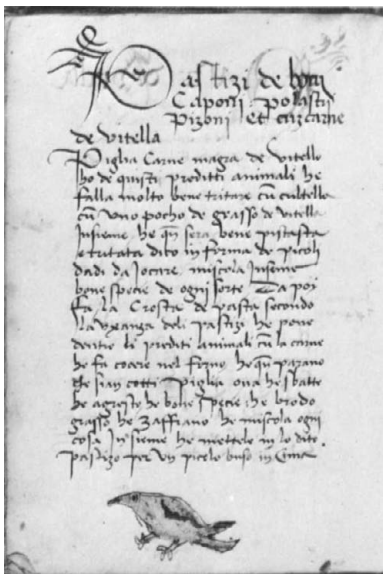 Pastizi de boni
Caponi polastri
Pizoni Et cu carne
de vitella
Piglia Carne magra de vitello
ho de quisti preditti animali he
falla molto bene tritare cu cultello
cu uno pocho de grasso de vitella
Insieme he qn sera bene pistasta
e tritata dico in forma de picoli
dadi da Jocare miscola Inseme
bone specie de ogni sorte Da poi
fa la Crosta de pasta secondo
la usanza deli pastizi he pone
dentro li preditti animali cu la carne
he fa cocere nel forno he qn parano
che sian cotti Piglia ova he sbatte
he agresto he bone specie he brodo
grasso he Zaffrano he miscola ogni
cosa Insieme he mettelo in lo dito
pastizo per un picolo buso in Cima